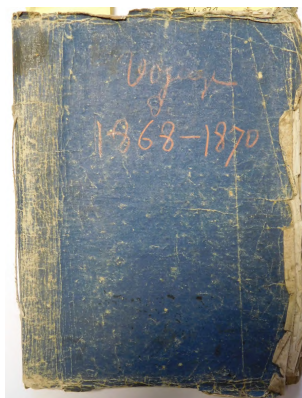 Voyage
1868-1870